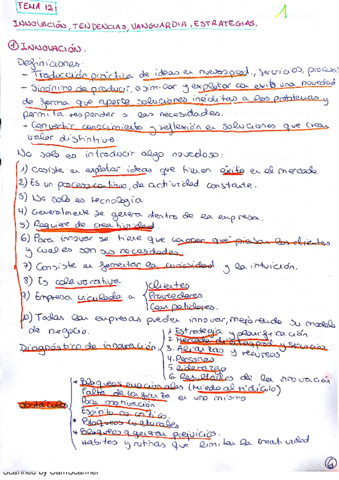 TEMA 12:
1
INNOVACIÓN, TENDENCIAS, VANGUARDIA, ESTRATEGIAS.
① INNOVACIÓN.
Definiciones:
- Traducción práctica de ideas en nuevos prod., servicios, proceso
- Sinónimo de producir, asimilar y explotar con éxito una novedad
de forma que aporte soluciones inéditas a los problemas y
permita responder a las necesidades.
- Convertir conocimiento y reflexión en soluciones que crean
valor distintivo.
No solo es introducir algo novedoso:
1) Consiste en explotar ideas que tienen éxito en el mercado
2) Es un proceso continuo, de actividad constante.
3) No solo es tecnología
4) Generalmente se genera dentro de la empresa.
5) Requiere de creatividad.
6) Para innovar se tiene que conocer qué piensan los clientes
y cuáles son sus necesidades
7) Consiste en fomentar la curiosidad y la intuición.
8) Es colaborativa
9) Empresa vinculada a
Clientes
Proveedores
Competidores.
10) Todas las empresas pueden innovar, mejorando su modelo
de negocio.
Diagnóstico de innovación
1. Estrategia y planificación
2. Mercado
3. Alianzas y recursos
4. Personas
5. Liderazgo
6. Resultados de la innovación
Obstáculos
* Bloqueos emocionales (Miedo al ridículo)
Falta de confianza en uno mismo
Poca motivación
Espíritu no crítico.
* Bloqueos culturales
* Bloqueos a generar prejuicios.
Hábitos y rutinas que limitan la creatividad
6
Scanned by CamScanner